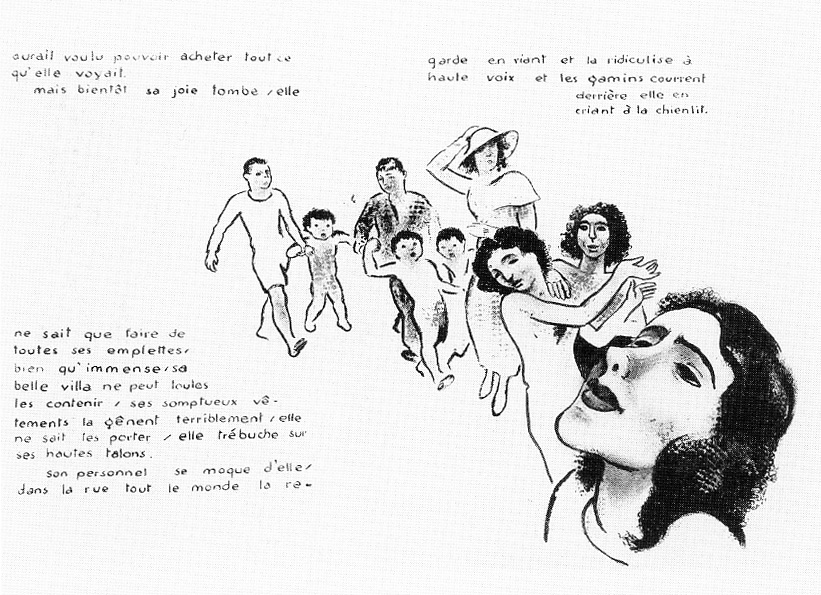 aurait voulu pouvoir acheter tout ce
qu'elle voyait.
mais bientôt sa joie tombe / elle
ne sait que faire de
toutes ses emplettes,
bien qu'immense, sa
belle villa ne peut toutes
les contenir / ses somptueux vê-
tements la gênent terriblement / elle
ne sait les porter / elle trébuche sur
ses hautes talons.
son personnel se moque d'elle,
dans la rue tout le monde la re-
garde en riant et la ridiculise à
haute voix et les gamins courrent
derrière elle en
criant à la chienlit.